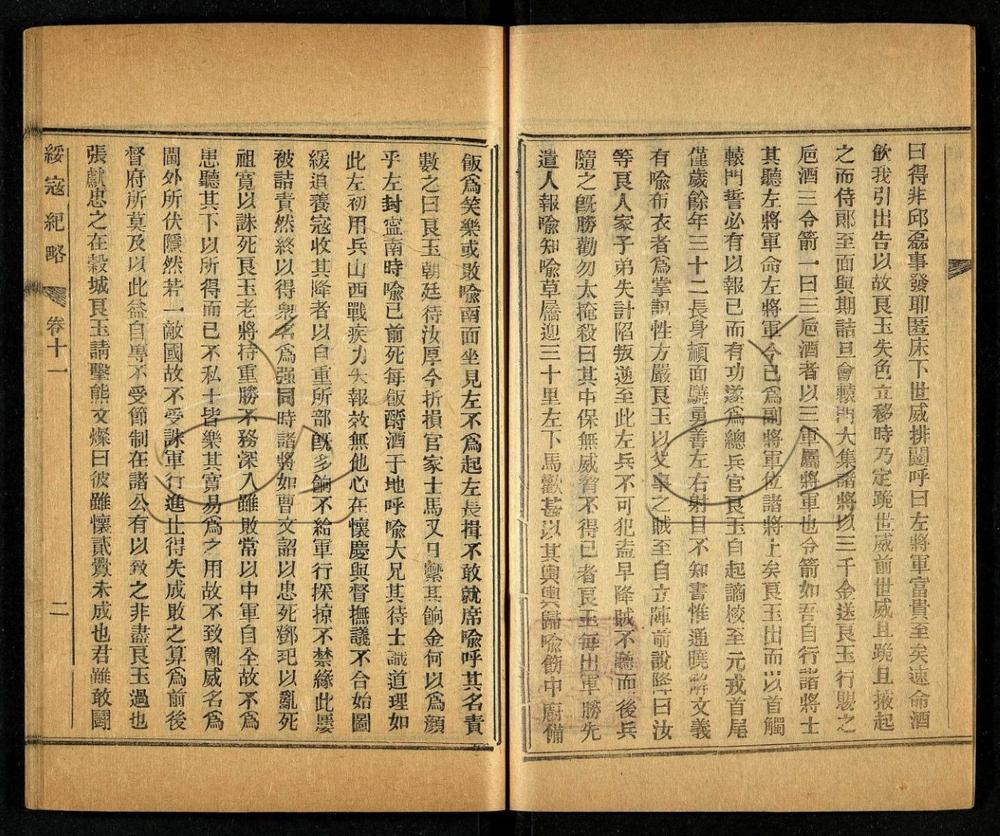 曰得非邱磊事發耶匿床下世威排闥呼曰左將軍富貴至矣速命酒
飲我引出告以故良玉失色立移時乃定跪世威前世威且跪且掖起
之而侍郎至面與期詰旦會轅門大集諸將以三千金送良玉行賜之
卮酒三令箭一曰三卮酒者以三軍屬將軍也令箭如吾自行諸將士
其聽左將軍命左將軍今已為副將軍位諸將上矣良玉出而以首觸
轅門誓必有以報已而有功遂為總兵官良玉自起謫校至元戎首尾
僅歲餘年三十二長身頳面驍勇善左右射目不知書惟通曉解文義
有喻布衣者為掌記性方嚴良玉以父事之賊至自立陣前說降曰汝
等良人家子弟失計陷叛逆至此左兵不可犯盍早降賊不聽而後兵
隨之既勝勸勿太掩殺曰其中保無威脅不得已者良玉每出軍勝先
遣人報喻知喻草屩迎三十里左下馬歡甚以其輿輿歸喻飭中廚備
飯為笑樂或敗喻南面坐見左不為起左長揖不敢就席喻呼其名責
數之曰良玉朝廷待汝厚今折損官家士馬又日縻其餉金何以為顏
乎左封寧南時喻已前死每飯酹酒于地呼喻大兄其待士識道理如
此左初用兵山西戰疾力大報效無他心在懷慶與督撫議不合始圖
緩追養寇收其降者以自重所部既多餉不給軍行採掠不禁緣此屢
被詰責然終以得衆名為强同時諸將如曹文詔以忠死鄧玘以亂死
祖寬以誅死良玉老將持重勝不務深入雖敗常以中軍自全故不為
患聽其下以所得而已不私士皆樂其寬易為之用故不致亂威名為
閫外所伏隱然若一敵國故不受誅軍行進止得失成敗之算為前後
督府所莫及以此益自專不受節制在諸公有以致之非盡良玉過也
張獻忠之在穀城良玉請擊熊文燦曰彼雖懷貳釁未成也君雖敢鬪
綏寇紀略 卷十一 二